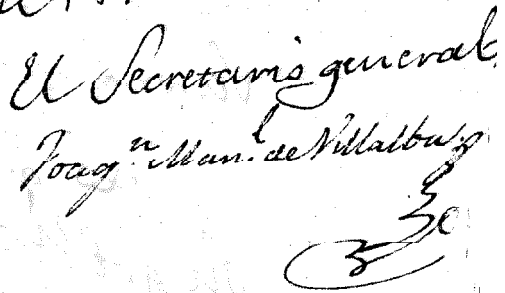 El Secretario general
Joaq.n Man.l de Villalba